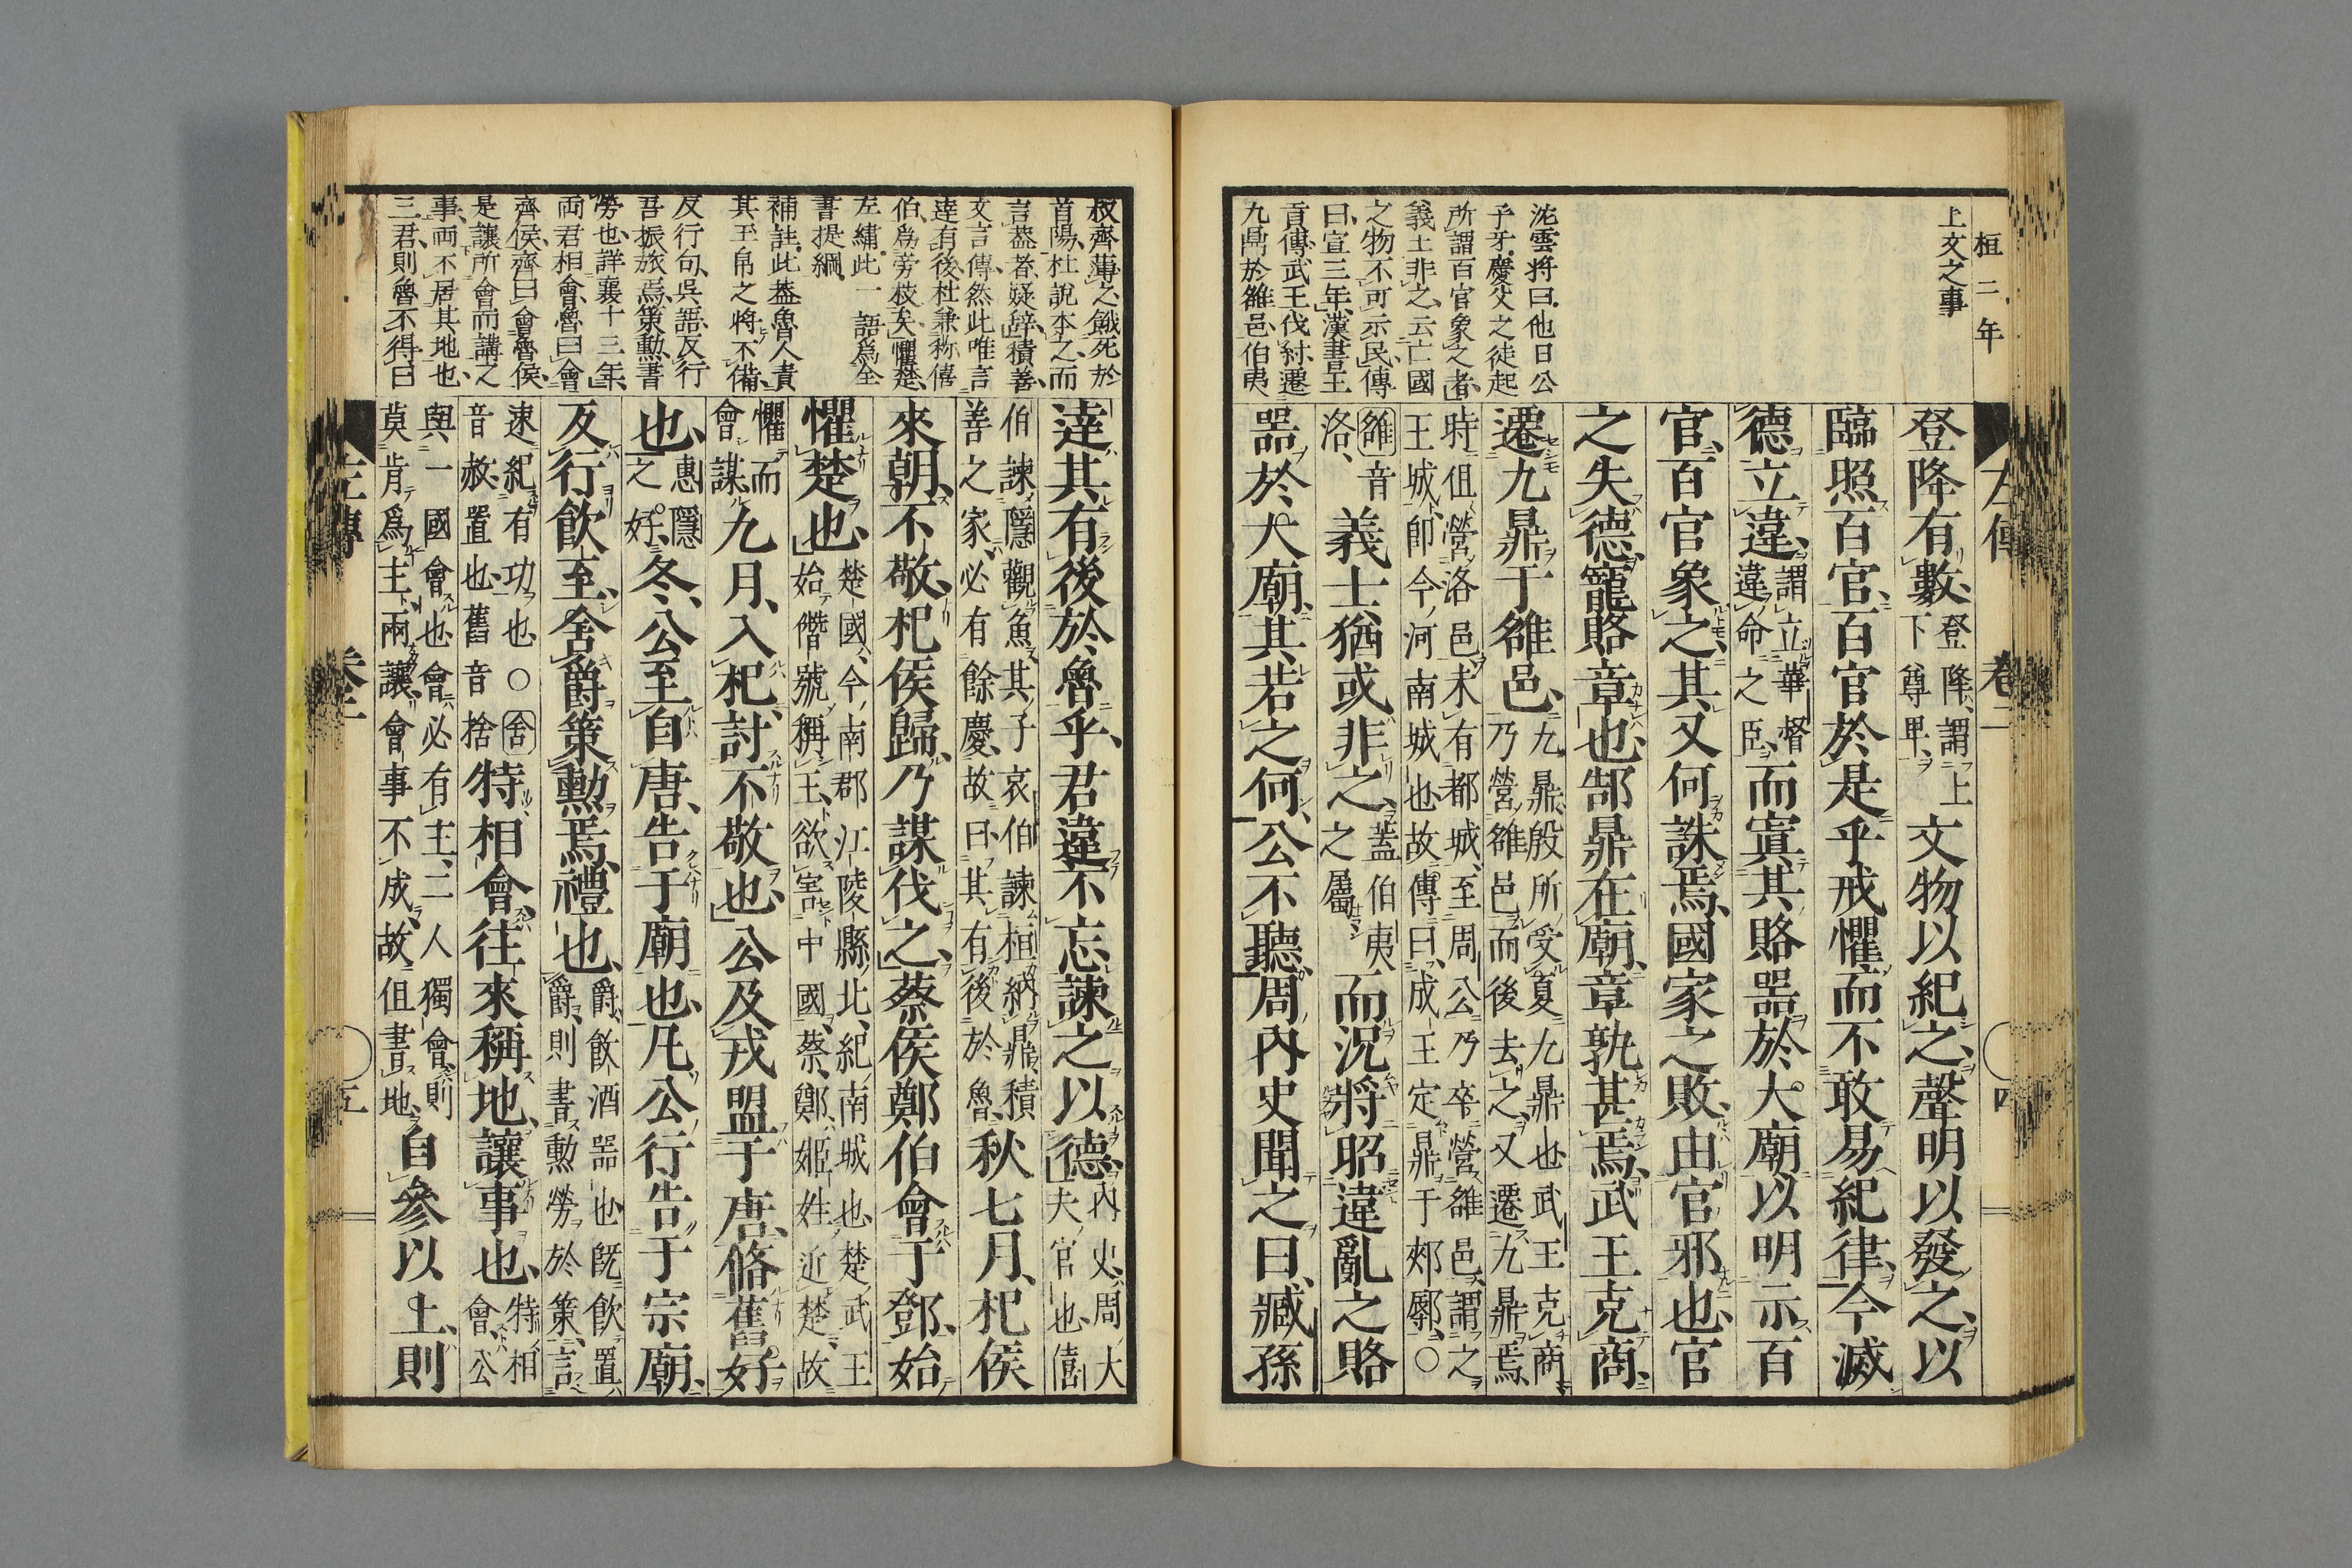 桓二年
上文之事
沈雲将曰他日公
子牙慶父之徒起
所謂百官象之者
義士非之云亡國
之物不可示民傳
曰宣三年漢書王
貢傳武王伐紂遷
九鼎於雒邑伯夷
左傳 卷二 四
登降有數登降謂上下尊卑文物以紀之聲明以發之以
臨照百官百官於是乎戒懼而不敢易紀律今滅
德立違謂立華督違命之臣而寘其賂器於大廟以明示百
官百官象之其又何誅焉國家之敗由官邪也官
之失德寵賂章也郜鼎在廟章孰甚焉武王克商
遷九鼎于雒邑九鼎殷所受夏九鼎也武王克商乃營雒邑而後去之又遷九鼎焉
時但營洛邑未有都城至周公乃卒營雒邑謂之王城即今河南城也故傳曰成王定鼎于郟鄏○
雒音洛義士猶或非之蓋伯夷之屬而況將昭違亂之賂
器於大廟其若之何公不聽周內史聞之曰臧孫
叔齊薄之餓死於
首陽杜說本之而
言蓋者疑辭積善
文言傳然此唯言
達有後杜兼称僖
伯爲旁枝矣懼楚
左繡此一語爲全
書提綱
補註此蓋魯人責
其玉帛之將不備
反行句吳語反行
吾振旅焉策勲書
勞也詳襄十三年
両君相會魯曰會
齊侯齊曰會魯侯
是讓所會而講之
事両不居其地也
三君則魯不得曰
達其有後於魯乎君違不忘諫之以德內史周大夫官也僖
伯諫隱觀魚其子哀伯諫桓納鼎積善之家必有餘慶故曰其有後於魯秋七月杞侯
來朝不敬杞侯歸乃謀伐之蔡侯鄭伯會于鄧始
懼楚也楚國今南郡江陵縣北紀南城也楚武王始僭號稱王欲害中國蔡鄭姬姓近楚故
懼而會謀九月入杞討不敬也公及戎盟于唐脩舊好
也惠隱之好冬公至自唐告于廟也凡公行告于宗廟
反行飲至舍爵策勲焉禮也爵飲酒器也既飲置爵則書勲勞於策言
速紀有功也○舍音赦置也舊音捨特相會往來稱地讓事也特相會公
與一國會也會必有主二人獨會則莫肯爲主兩讓會事不成故但書地自參以上則
左傳 卷二 五